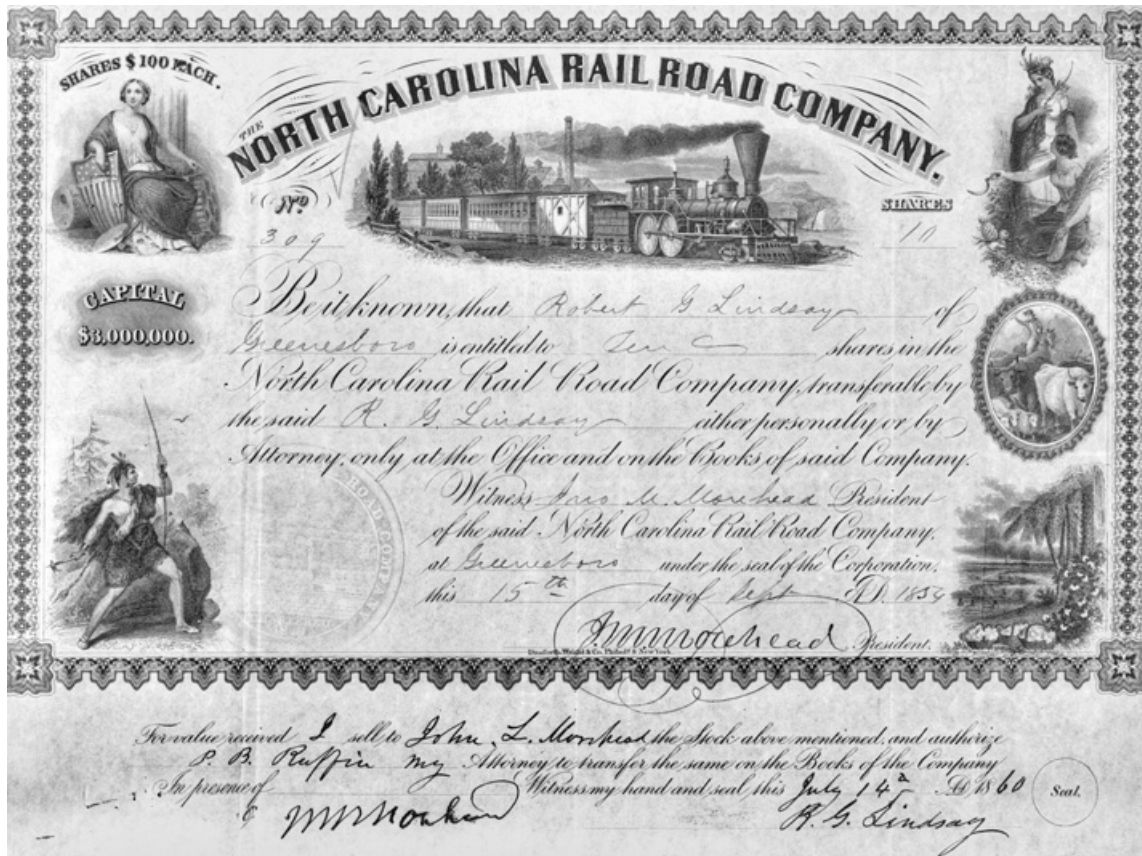 SHARES $100 EACH.
THE
NORTH CAROLINA RAIL ROAD COMPANY.
No
309
SHARES
10
CAPITAL
$3,000,000.
Be it known, that Robert G Lindsay of
Greensboro is entitled to Ten shares, in the
North Carolina Rail Road Company, transferable by
the said R. G. Lindsay either personally or by
Attorney, only at the Office and on the Books of said Company.
Witness Jno M. Morehead President
of the said North Carolina Rail Road Company,
at Greensboro under the seal of the Corporation,
this 15th day of Sept A.D. 1854
J M Morehead President.
Danforth, Wright & Co. Philada & New York
ROAD COMPANY
For value received I sell to John L. Morehead the Stock above mentioned, and authorize
P. B. Ruffin my Attorney to transfer the same on the Books of the Company
In presence of Witness my hand and seal this July 14 AD 1860 Seal.
J M Morehead R. G. Lindsay